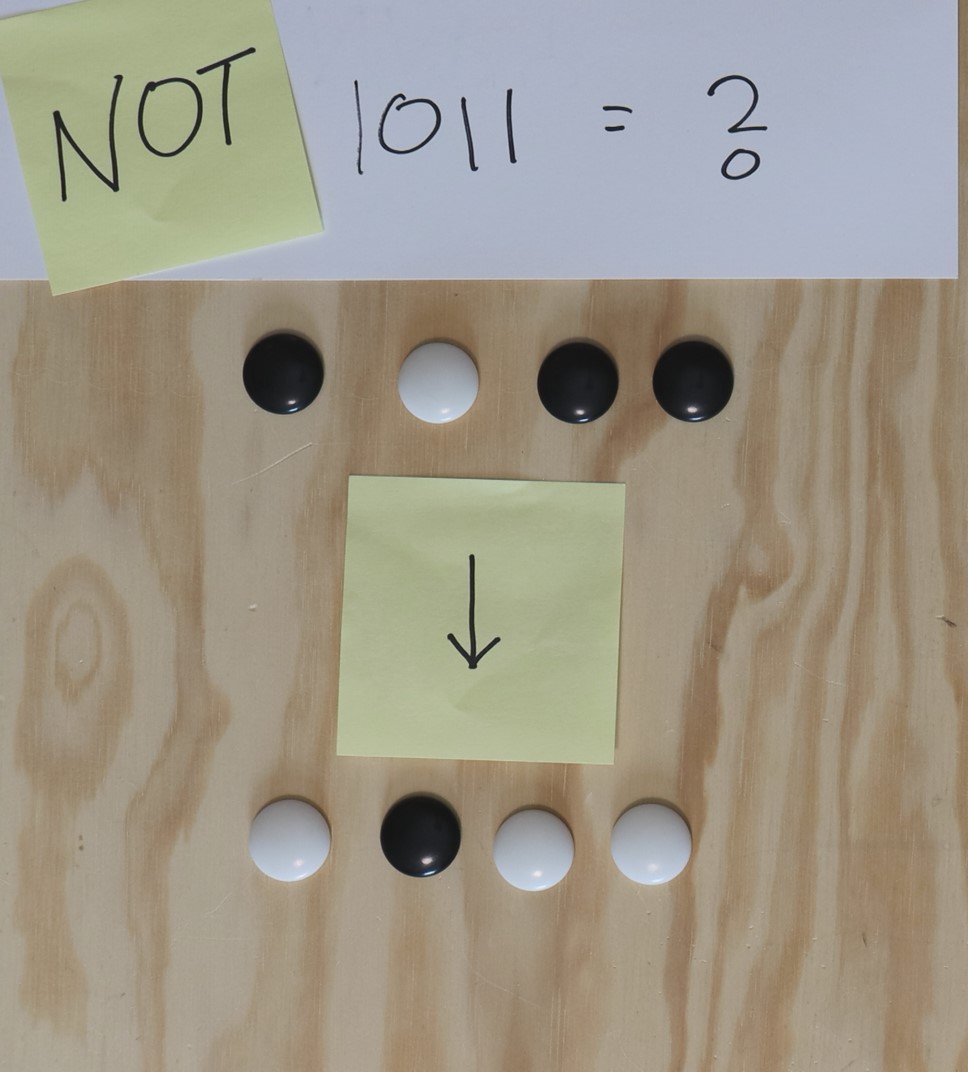 NOT 1011 = ?
↓